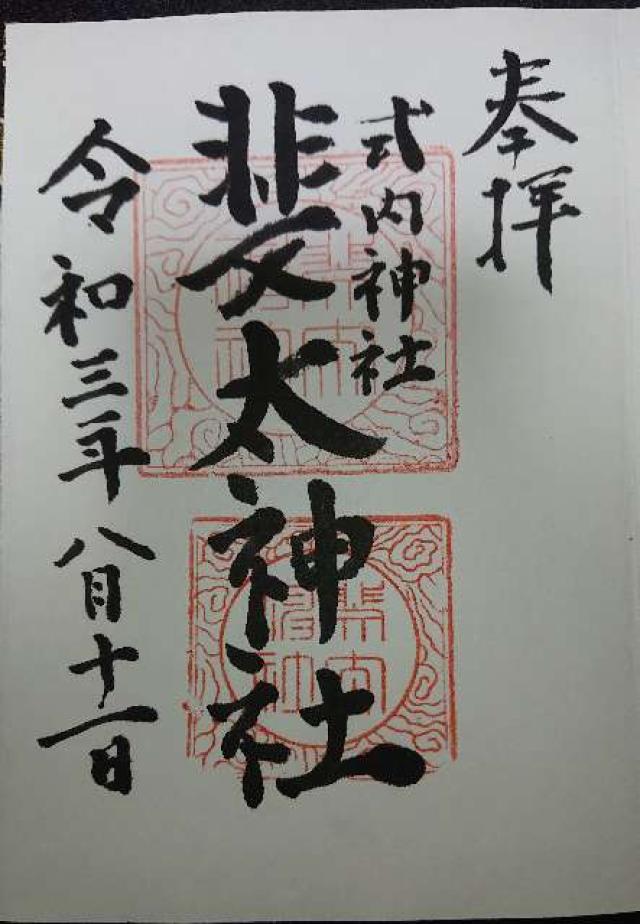 奉拝
式内神社
斐太神社
令和三年八月十一日